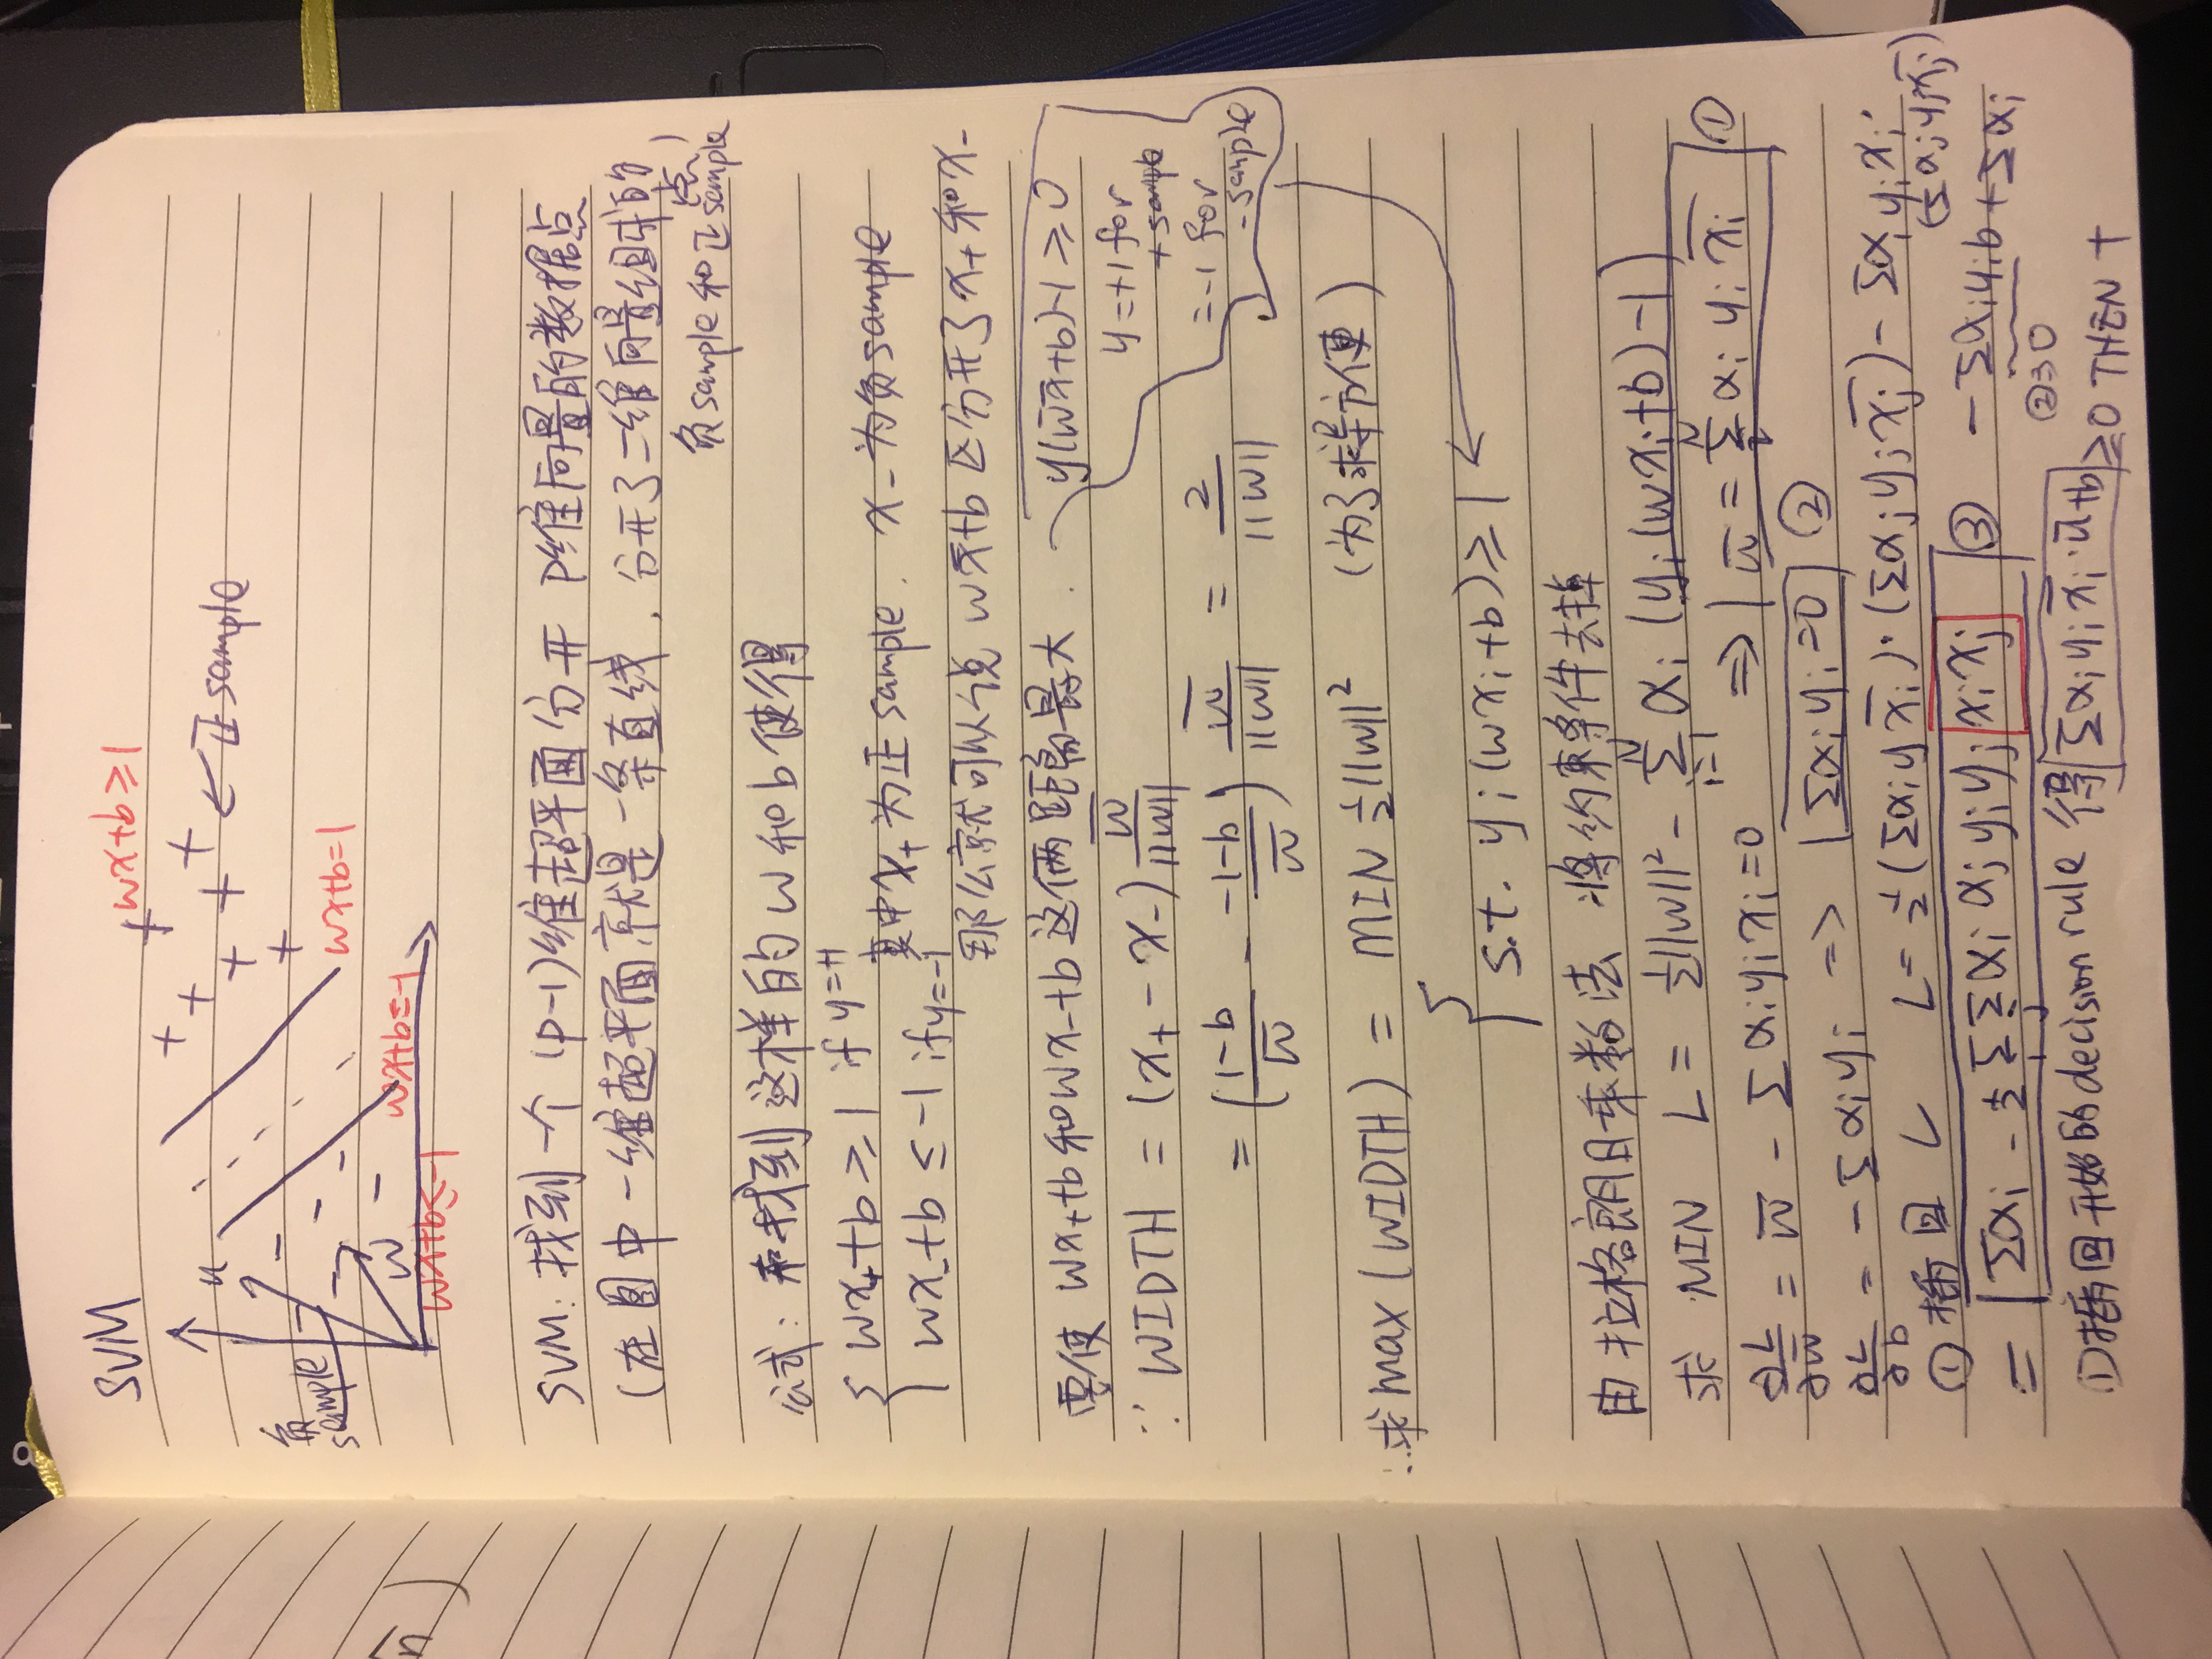 SVM
wx+b≥1
u
正sample
负
sample
wx+b=1
w
wx+b≤-1
wx+b≤-1
SVM: 找到一个 (p-1)维超平面分开 p维向量的数据点
(在图中一维超平面就是一条直线, 分开了二维向量组成的
点)
负sample和正sample
公式: 求找到这样的 w 和 b 使得
{ wx₊+b ≥ 1 if y=+1
wx₋+b ≤ -1 if y=-1
其中x₊为正sample. x₋为负sample
那么就可以说 wx̄+b 区分开了x₊和x₋
要使 wx₊+b和wx₋+b 这俩距离最大.
y(w̄x̄+b)-1≥0
y=+1 for
+ sample
=-1 for
- sample
∵ WIDTH = (x₊ - x₋) w̄/||w||
= ((1-b)/w̄ - (-1-b)/w̄) w̄/||w|| = 2/||w||
∴求max(WIDTH) = MIN ½||w||² (为了求导方便)
{ s.t. yᵢ(wxᵢ+b)≥1
由拉格朗日乘数法 将约束条件去掉
求 MIN L = ½||w||² - Σᵢ₌₁ᴺ αᵢ (yᵢ(wxᵢ+b)-1)
∂L/∂w̄ = w̄ - Σαᵢyᵢxᵢ=0 => w̄ = Σᵢᴺ αᵢ yᵢ x̄ᵢ ①
∂L/∂b = -Σαᵢyᵢ => Σαᵢyᵢ=0 ②
①插回 L L=½(Σαᵢy x̄ᵢ)·(Σαⱼyⱼx̄ⱼ) - Σαᵢyᵢxᵢ·
(Σαⱼyⱼx̄ⱼ)
- Σαᵢyᵢb + Σαᵢ
②⇒0
= Σαᵢ - ½ΣᵢΣⱼαᵢαⱼyᵢyⱼxᵢxⱼ ③
①插回开始的decision rule 得 Σαᵢyᵢx̄ᵢ·ū+b ≥0 THEN +